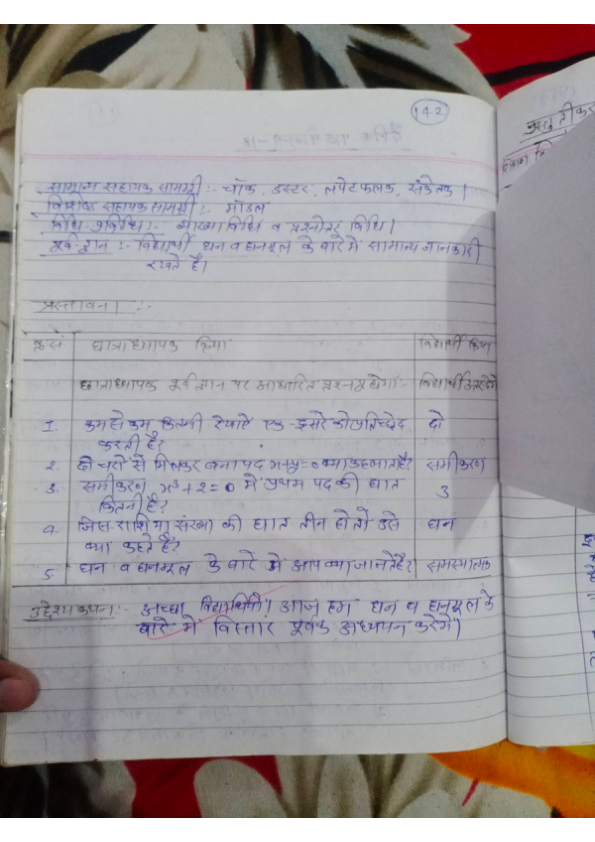 142
सामान्य सहायक सामग्री :- चॉक, डस्टर, लपेटफलक, संकेतक।
विशिष्ट सहायक सामग्री :- मॉडल
विधि-प्रविधि :- व्याख्या विधि व प्रश्नोत्तर विधि।
पूर्व ज्ञान :- विद्यार्थी घन व घनमूल के बारे में सामान्य जानकारी
रखते हैं।
प्रस्तावना :-
क्रसं छात्राध्यापक क्रिया विद्यार्थी क्रिया
छात्राध्यापक पूर्व ज्ञान पर आधारित प्रश्न पूछेगा- विद्यार्थी उत्तर देंगे
1. कम से कम कितनी रेखाऐं एक-दूसरे को प्रतिच्छेद दो
करती है?
2. दो चरों से मिलकर बना पद x+y=0 क्या कहलाता है? समीकरण
3. समीकरण x³+2=0 में प्रथम पद की घात 3
कितनी है?
4. जिस राशि या संख्या की घात तीन हो तो उसे घन
क्या कहते हैं?
5. घन व घनमूल के बारे में आप क्या जानते हैं? समस्यात्मक
उद्देश्य कथन :- अच्छा विद्यार्थियों! आज हम घन व घनमूल के
बारे में विस्तार पूर्वक अध्ययन करेंगे।